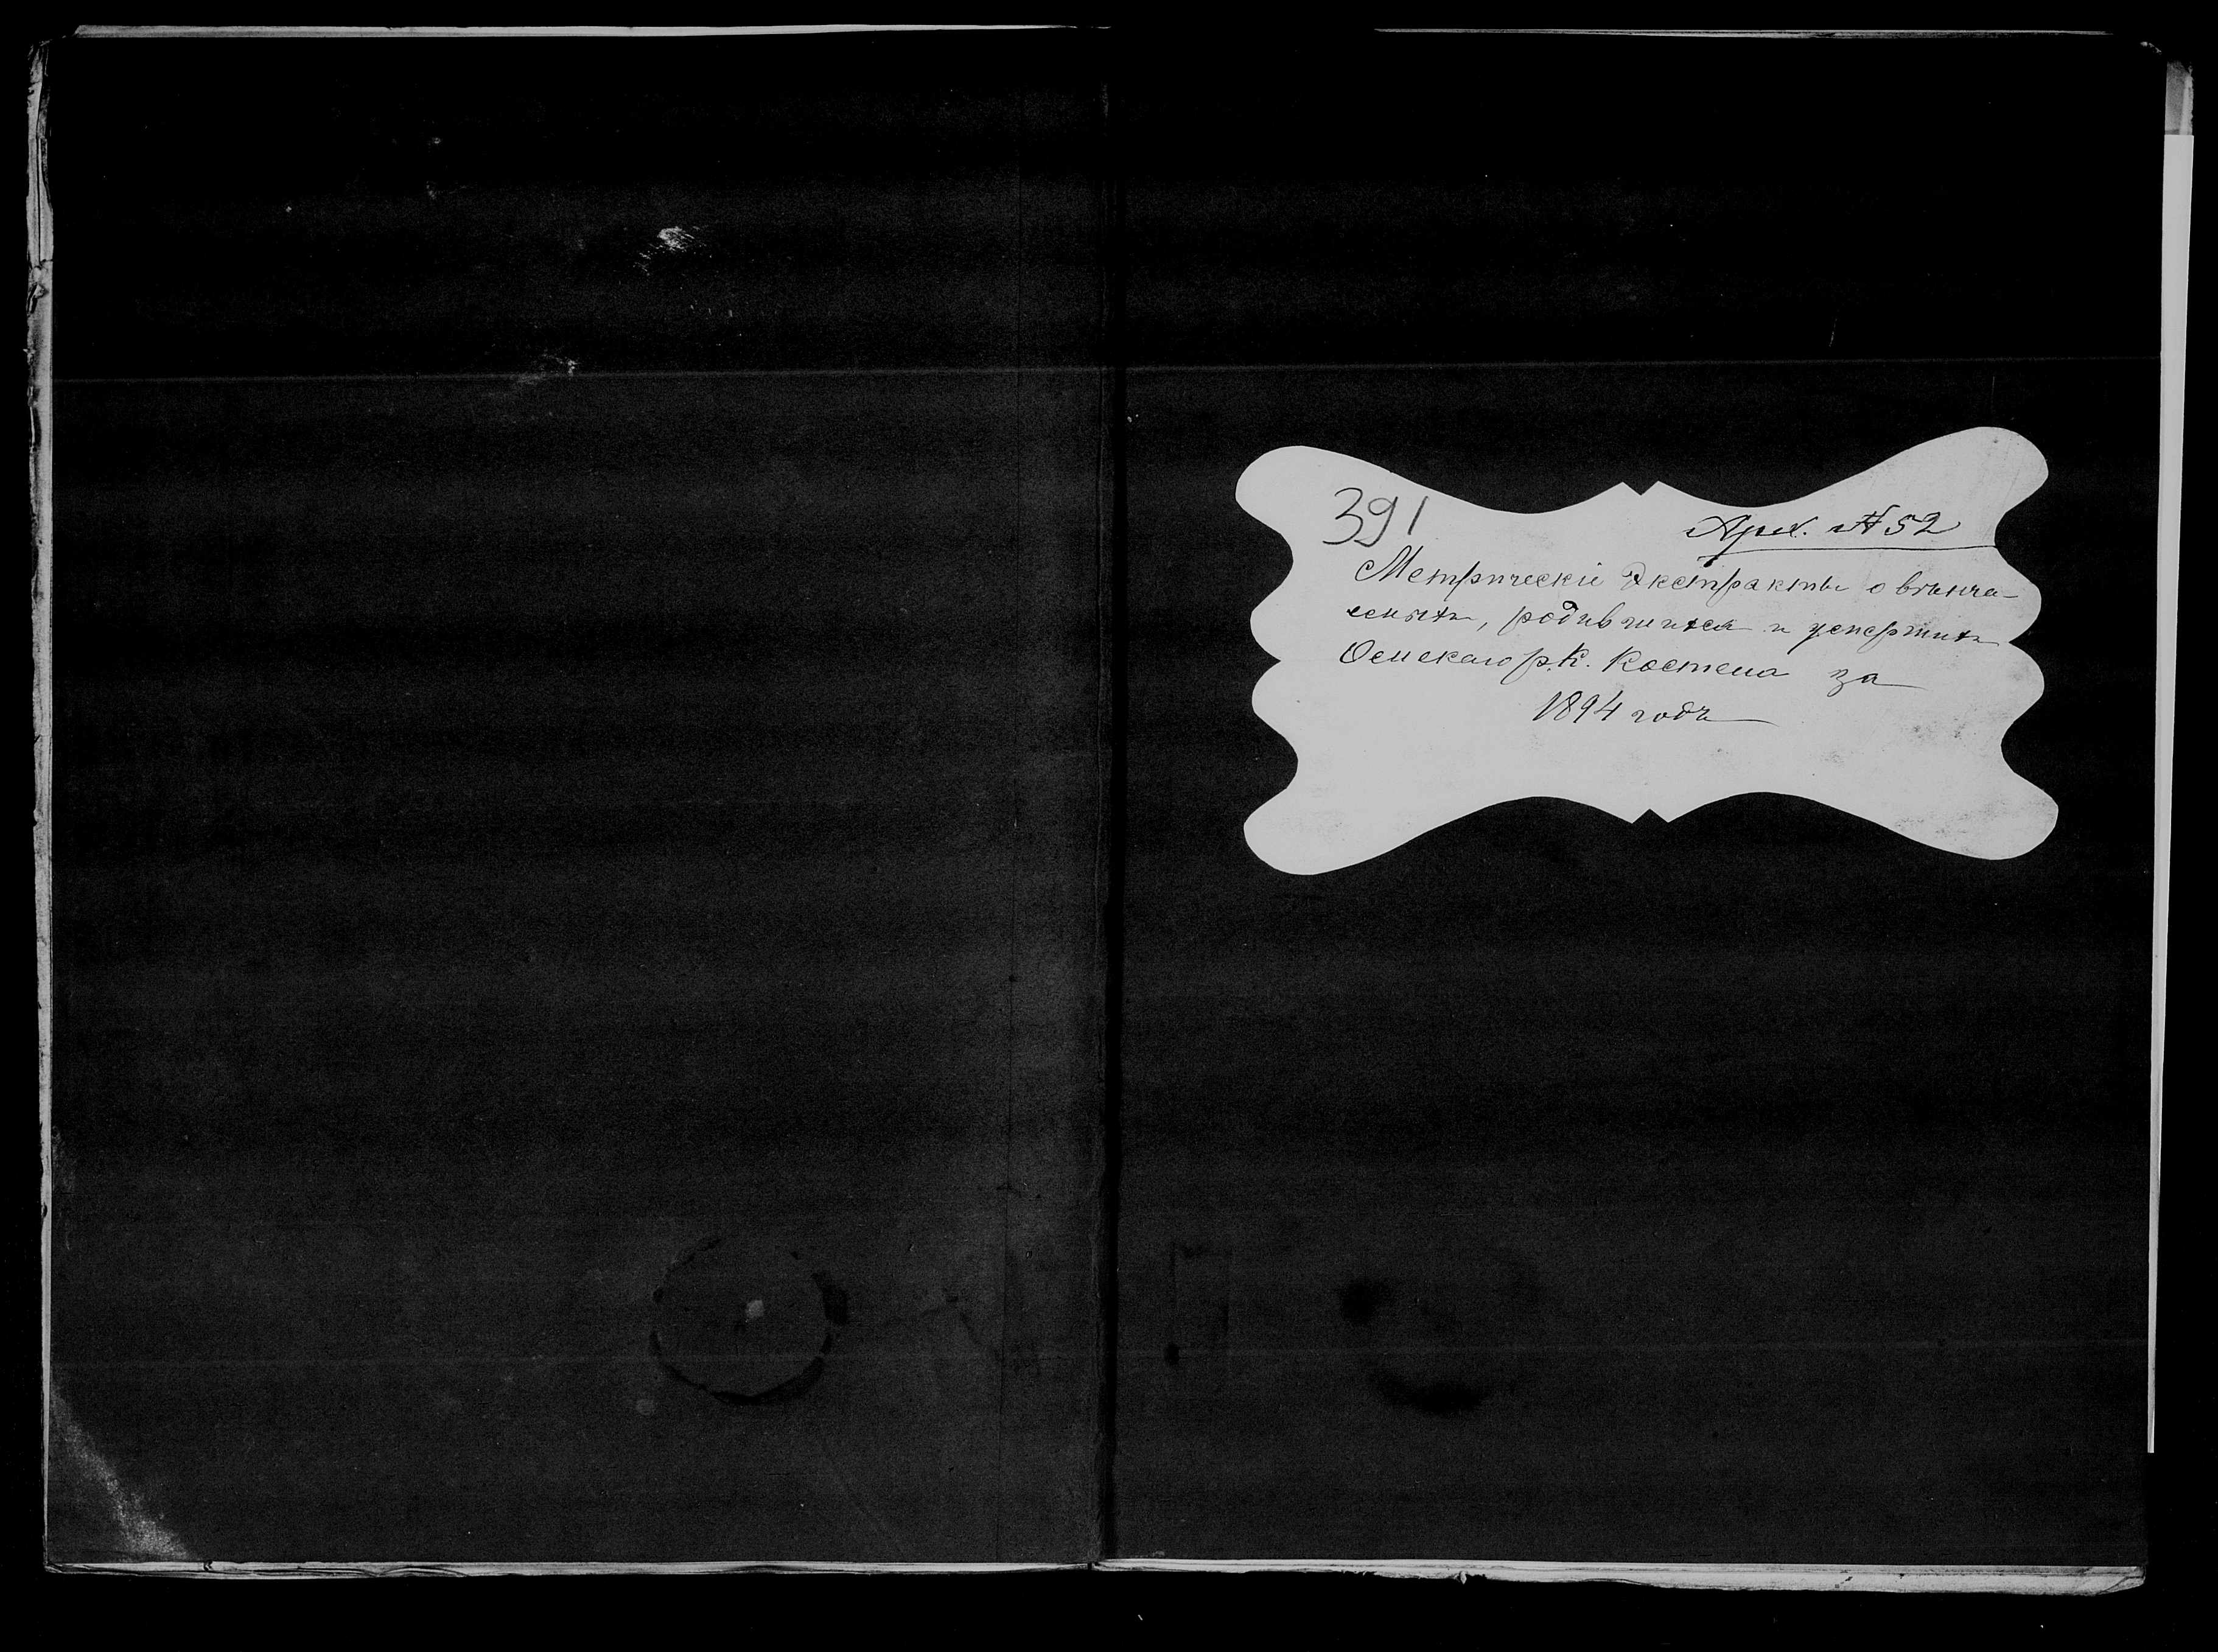 391
Арх. № 52
Метрическіе Экстракты о вѣнча-
ныхъ, родившихся и умершихъ
Омскаго р. к. Костела за
1894 годъ